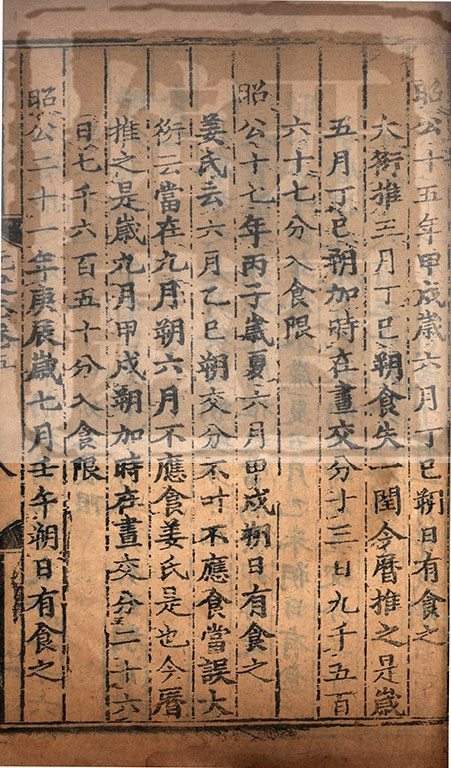 昭公十五年甲戌歲六月丁巳朔日有食之
大衍推五月丁巳朔食失一閏今曆推之是歲
五月丁巳朔加時在晝交分十三日九千五百
六十七分入食限
昭公十七年丙子歲夏六月甲戌朔日有食之
姜氏云六月乙巳朔交分不叶不應食當誤大
衍云當在九月朔六月不應食姜氏是也今曆
推之是歲九月甲戌朔加時在晝交分二十六
日七千六百五十分入食限
昭公二十一年庚辰歲七月壬午朔日有食之